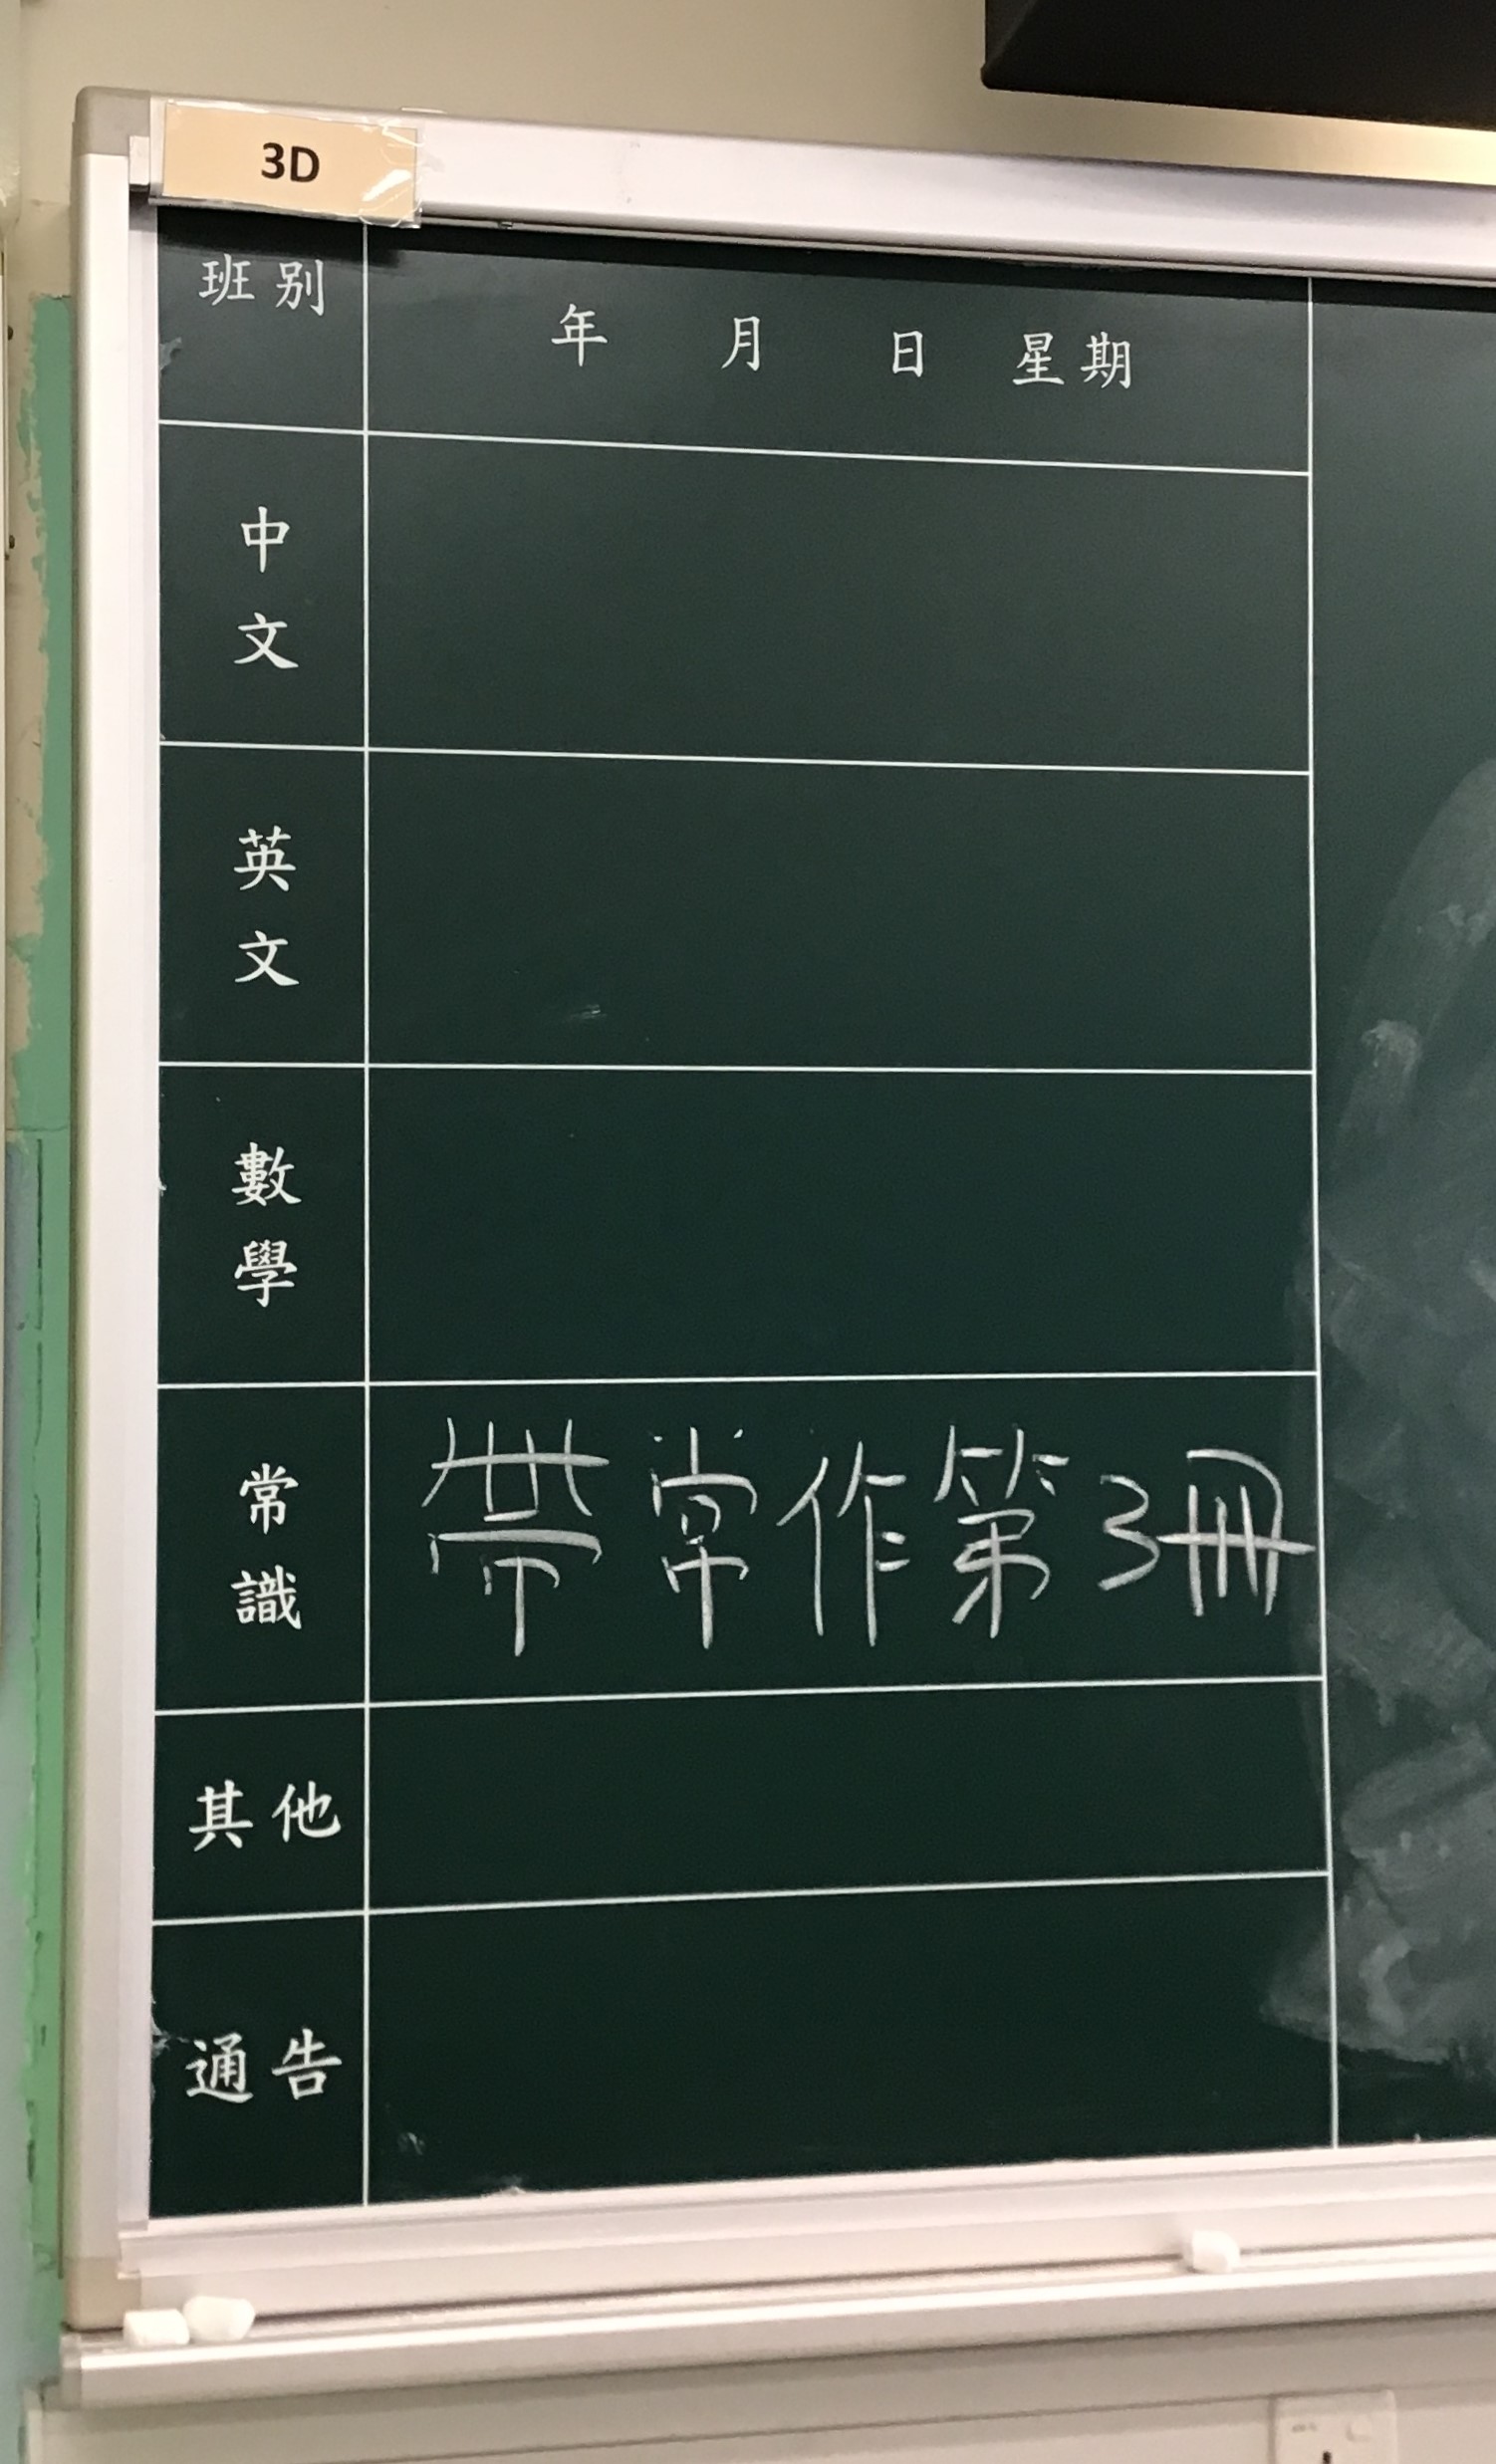 3D
班別
年 月 日 星期
中文
英文
數學
常識
帶常作第3冊
其他
通告